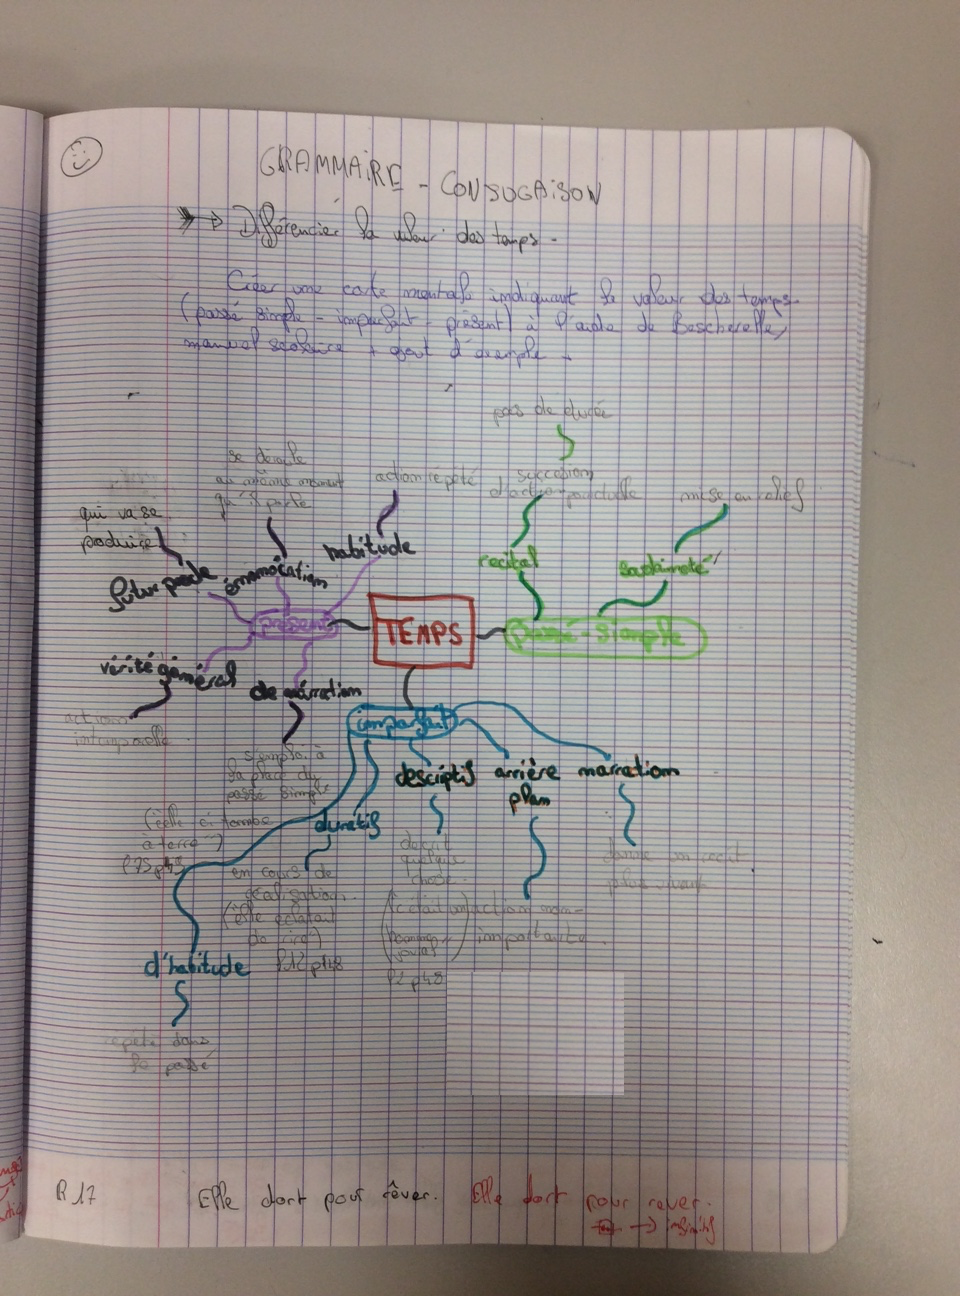 GRAMMAIRE - CONJUGAISON
Différencier la valeur des temps.
Créer une carte mentale indiquant la valeur des temps
(passé simple - imparfait - présent) à l'aide de Bescherelle,
manuel scolaire + ajout d'exemple
pas de durée
se déroule
au même moment
qu'il parle
action répété
succession
d'action ponctuelle
mise en relief
qui va se
produire
habitude
récital
futur proche
énonciation
présent
TEMPS
passé-simple
vérité général
de narration
action
intemporelle
imparfait
s'emploi à
la place du
passé simple
(elle ci tombe
à terre)
P75 p48
descriptif
arrière
plan
narration
duratif
décrit
quelque
chose
donne un récit
plus vivant
en cours de
réalisation.
(elle éclatait
de rire)
P12 p48
(c'était un
P2 p48
action non-
importante
d'habitude
répété dans
le passé
R17
Elle dort pour rêver.
Elle dort pour rever.
→ infinitif